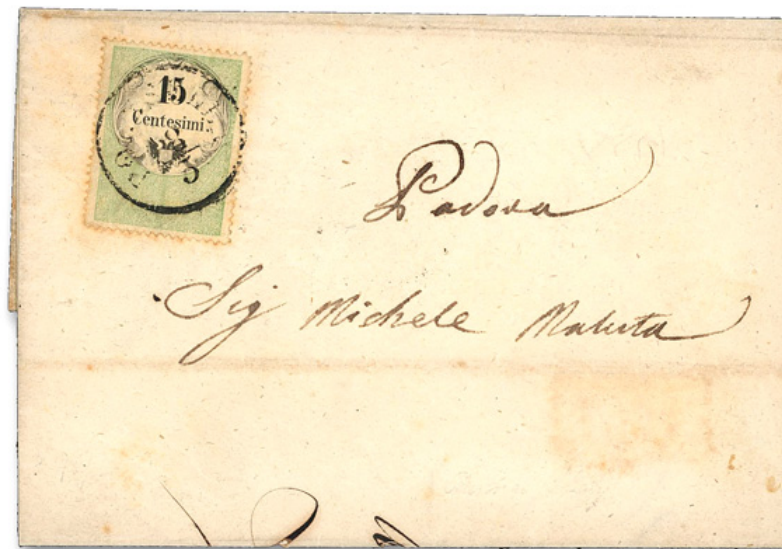 15
Centesimi.
Padova
Sig Michele Maluta